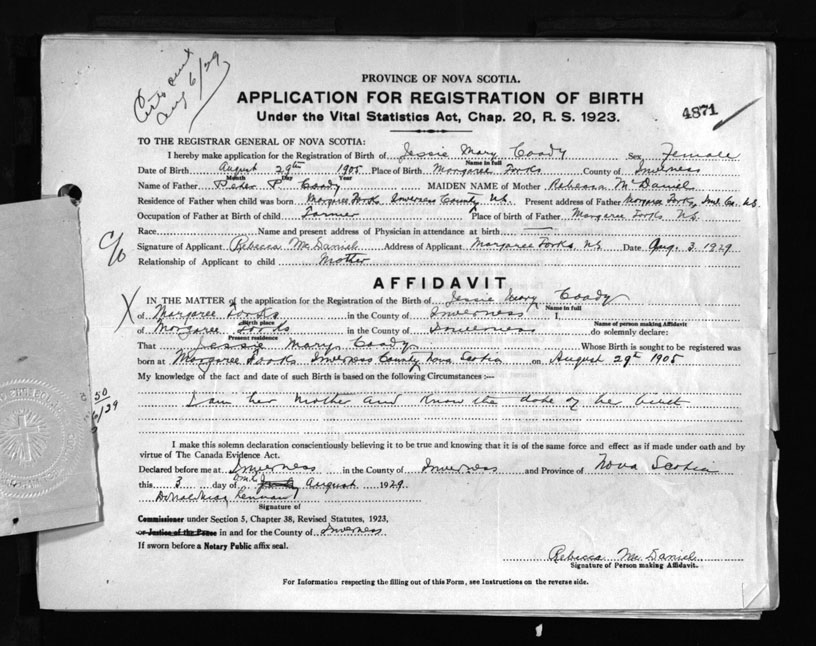 Certs sent
Aug 6/29
PROVINCE OF NOVA SCOTIA.
APPLICATION FOR REGISTRATION OF BIRTH
4871
Under the Vital Statistics Act, Chap. 20, R. S. 1923.
TO THE REGISTRAR GENERAL OF NOVA SCOTIA:
I hereby make application for the Registration of Birth of Jessie Mary Coady Sex Female
Name in full
Date of Birth August 29th 1905 Place of Birth Margaree Forks County of Inverness
Month Day Year
Name of Father Peter P Coady MAIDEN NAME of Mother Rebecca McDaniel
Residence of Father when child was born Margaree Forks Inverness County N.S. Present address of Father Margaree Forks, Inv. Co. N.S.
Occupation of Father at Birth of child Farmer Place of birth of Father Margaree Forks N.S.
Race Name and present address of Physician in attendance at birth
Signature of Applicant Rebecca McDaniel Address of Applicant Margaree Forks, N.S Date Aug. 3 1929
Relationship of Applicant to child Mother
c/o
AFFIDAVIT
X IN THE MATTER of the application for the Registration of the Birth of Jessie Mary Coady
Name in full
of Margaree Forks in the County of Inverness I,
Birth place Name of person making Affidavit
of Margaree Forks in the County of Inverness do solemnly declare:
Present residence
That Jessie Mary Coady Whose Birth is sought to be registered was
born at Margaree Forks Inverness County Nova Scotia on August 29th 1905
My knowledge of the fact and date of such Birth is based on the following Circumstances :—
50
6/29
I am her mother and know the date of her birth
I make this solemn declaration conscientiously believing it to be true and knowing that it is of the same force and effect as if made under oath and by
virtue of The Canada Evidence Act.
Declared before me at Inverness in the County of Inverness and Province of Nova Scotia
this 3 day of August 1929
Signature of
Commissioner under Section 5, Chapter 38, Revised Statutes, 1923,
or Justice of the Peace in and for the County of Inverness
If sworn before a Notary Public affix seal.
Rebecca McDaniel
Signature of Person making Affidavit.
For Information respecting the filling out of this Form, see Instructions on the reverse side.